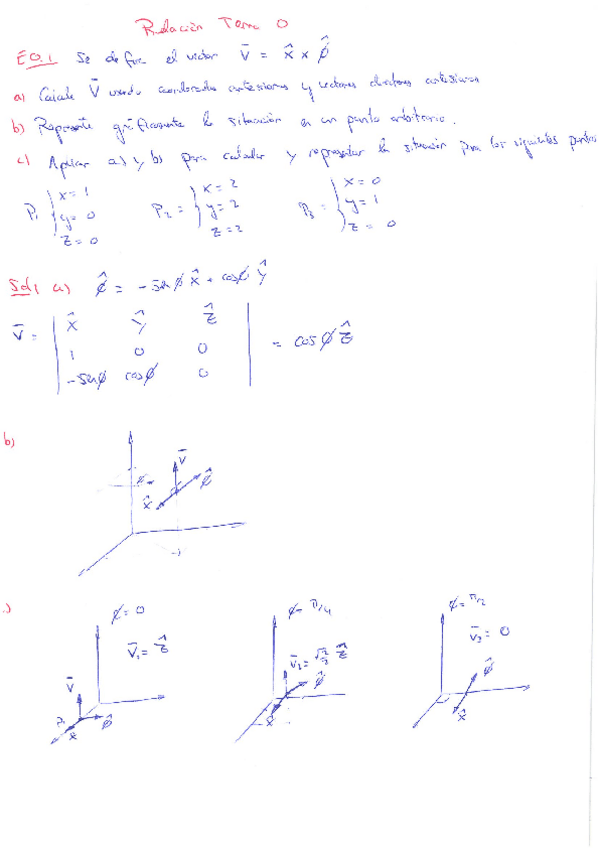 Relación Tema 0
E0.1 Se define el vector V̄ = x̂ × φ̂
a) Calcule V̄ usando coordenadas cartesianas y vectores directores cartesianos
b) Represente gráficamente la situación en un punto arbitrario.
c) Aplicar a) y b) para calcular y representar la situación para los siguientes puntos
P₁ { x = 1 y = 0 z = 0 P₂ = { x = 2 y = 2 z = 2 P₃ = { x = 0 y = 1 z = 0
Sol: a) φ̂ = -senφ x̂ + cosφ ŷ
V̄ = | x̂ ŷ ẑ |
| 1 0 0 | = cosφ ẑ
| -senφ cosφ 0 |
b)
V̄
φ̂
x̂
c)
φ = 0 φ = π/4 φ = π/2
V̄₁ = ẑ V̄₂ = √2/2 ẑ V̄₃ = 0
V̄ φ̂ φ̂
P₁ x̂ φ̂ x̂ x̂